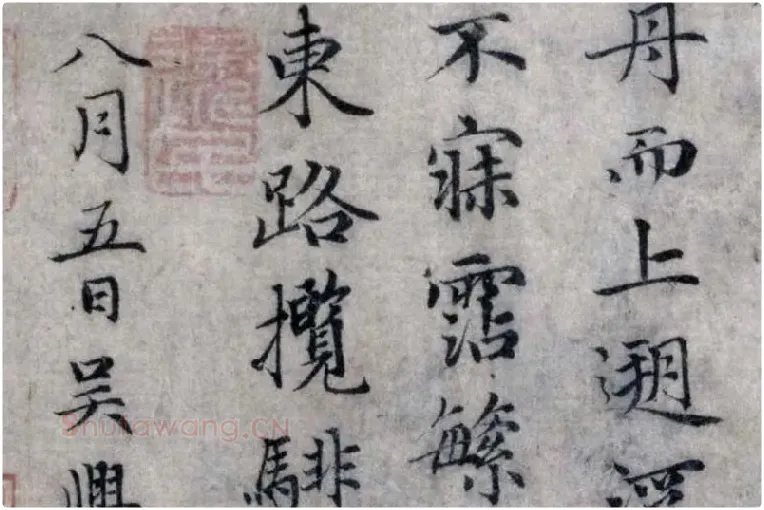 舟而上遡
不寐霑繁
東路攬騑
八月五日吴興
Shufawang.CN